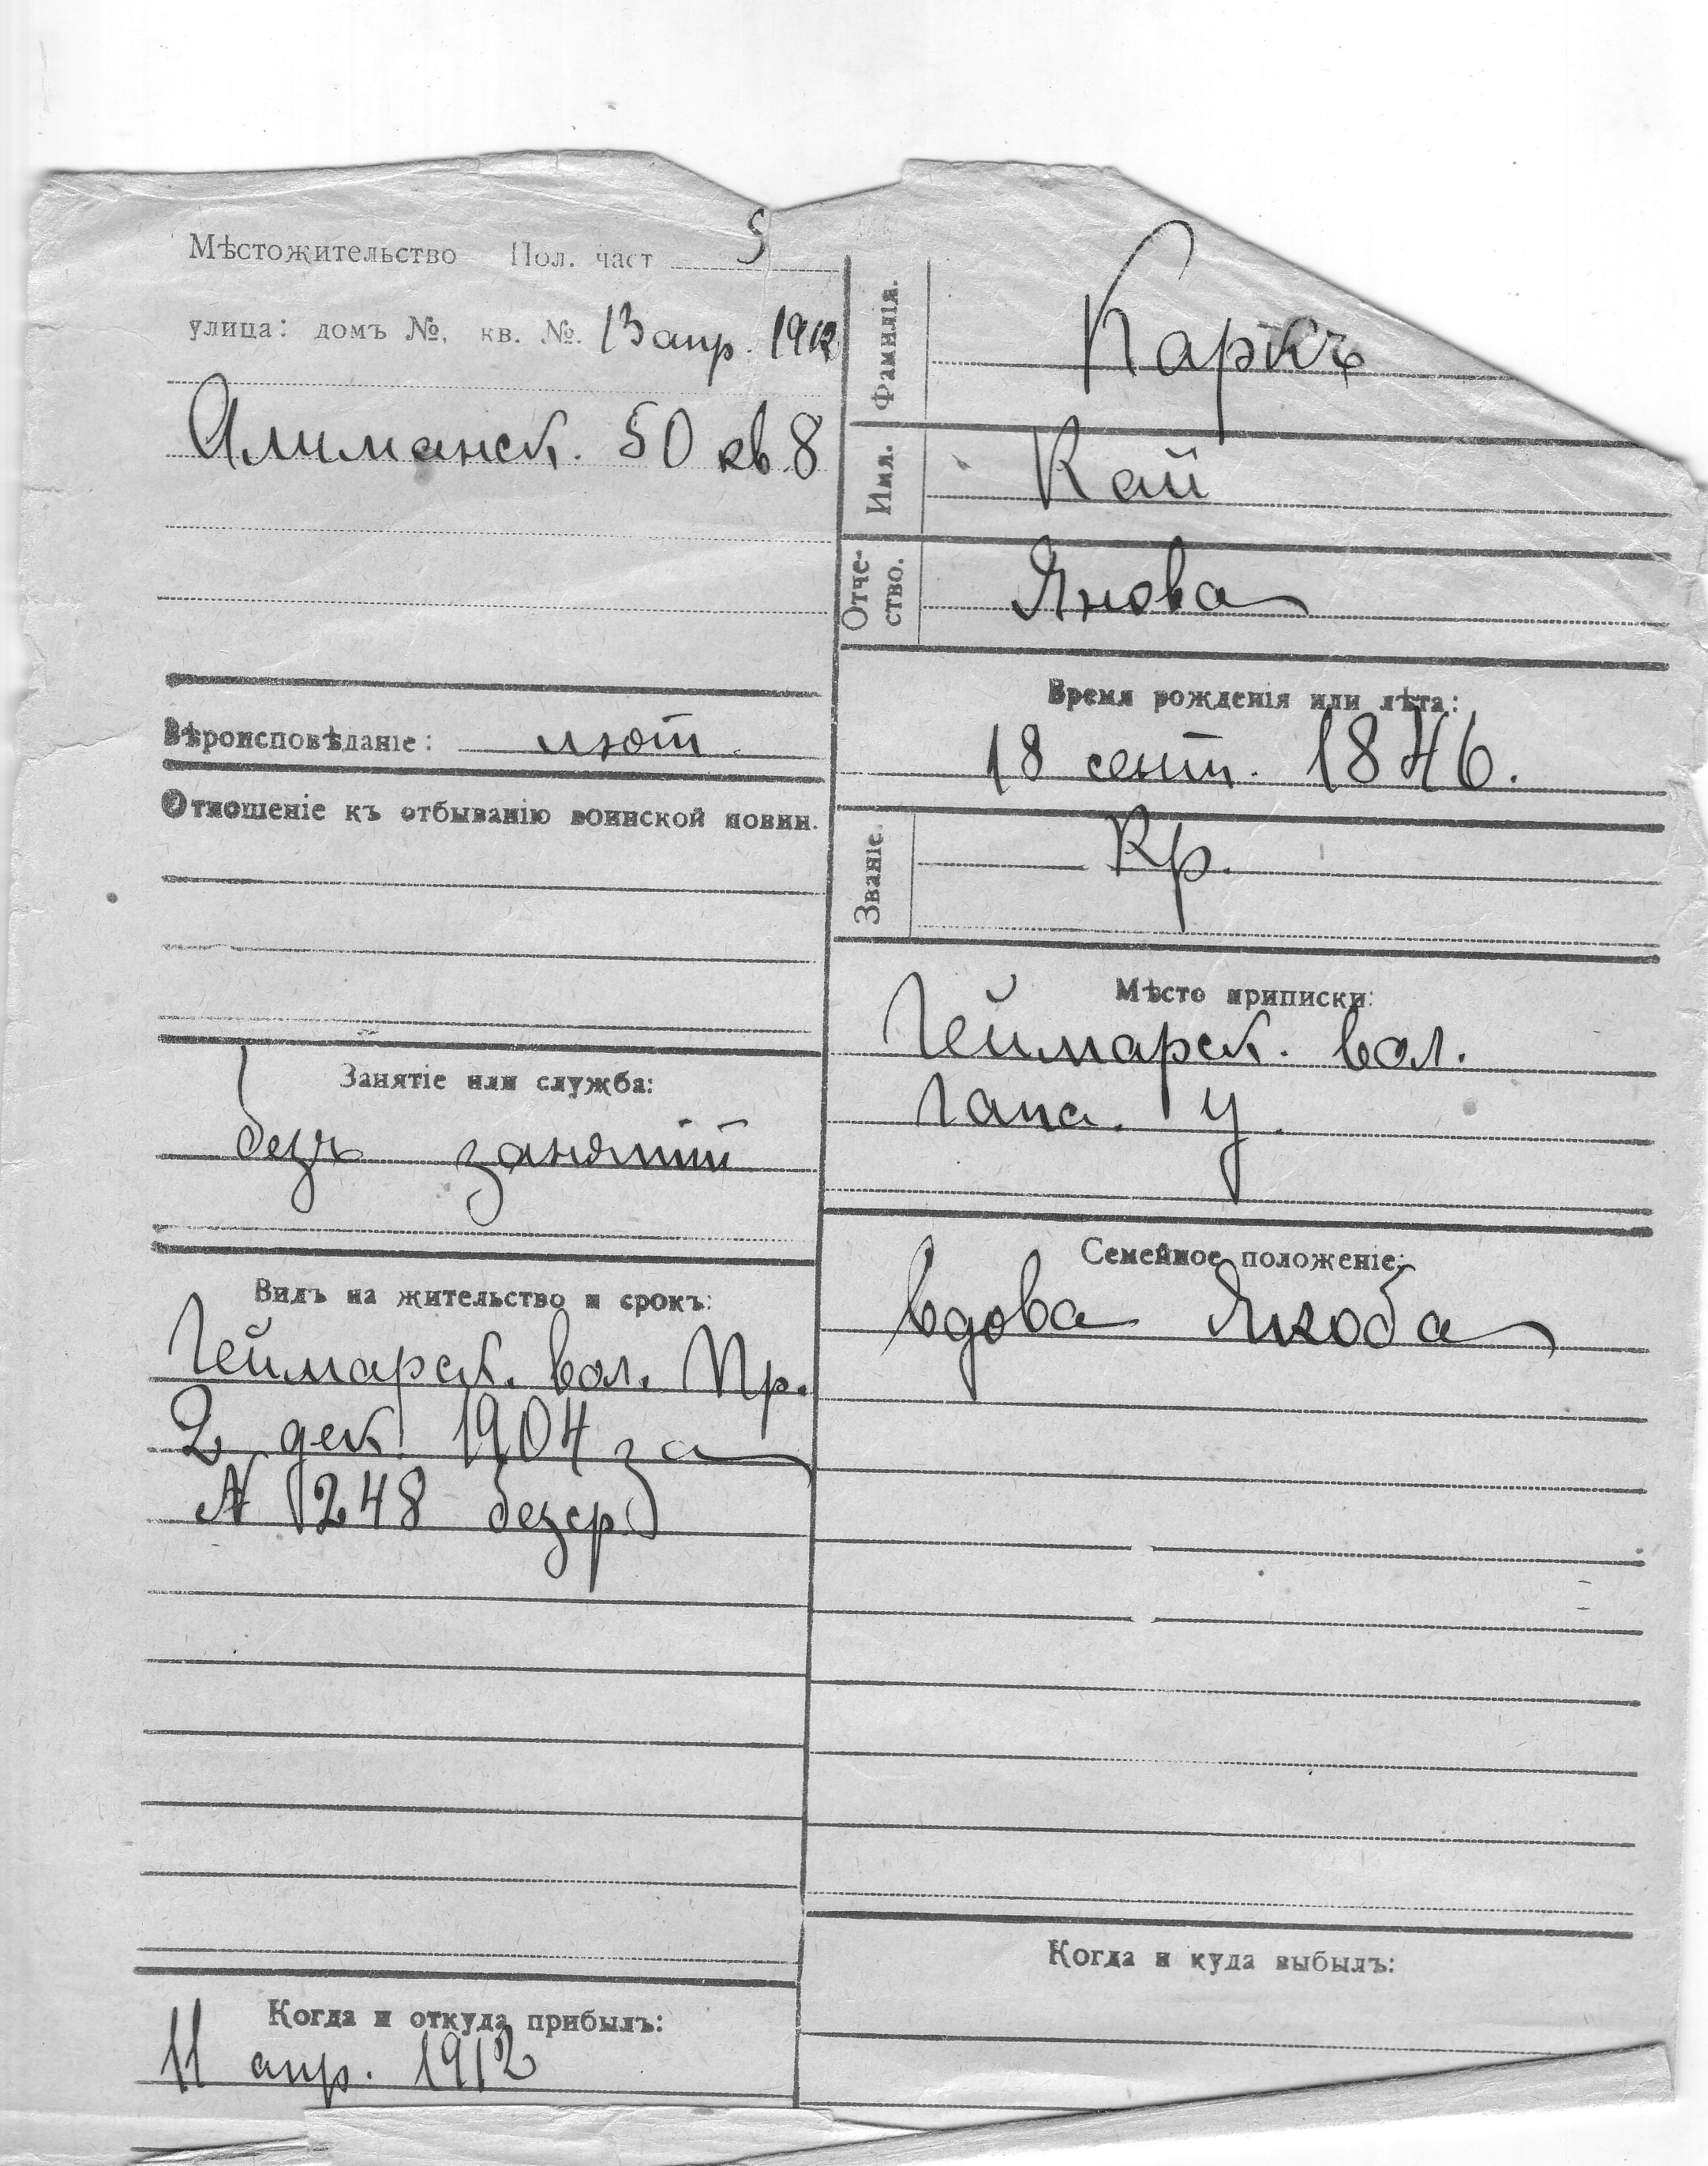 Мѣстожительство Пол. част 5
улица: домъ №, кв. №. 13 апр. 1912
Алиманск. 50 кв. 8
Вѣроисповѣданіе: лют.
Отношеніе къ отбыванію воинской повин.
Занятіе или служба:
безъ занятій
Видъ на жительство и срокъ:
Геймарск. вол. Пр.
2 дек. 1904 за
№ 1248 безср.
Когда и откуда прибылъ:
11 апр. 1912
Фамилія. Каркъ
Имя. Кай
Отче-
ство. Янова
Время рожденія или лѣта:
18 сент. 1846.
Званіе. Кр.
Мѣсто приписки:
Геймарск. вол.
Гапс. у.
Семейное положеніе:
вдова Якоба
Когда и куда выбылъ: